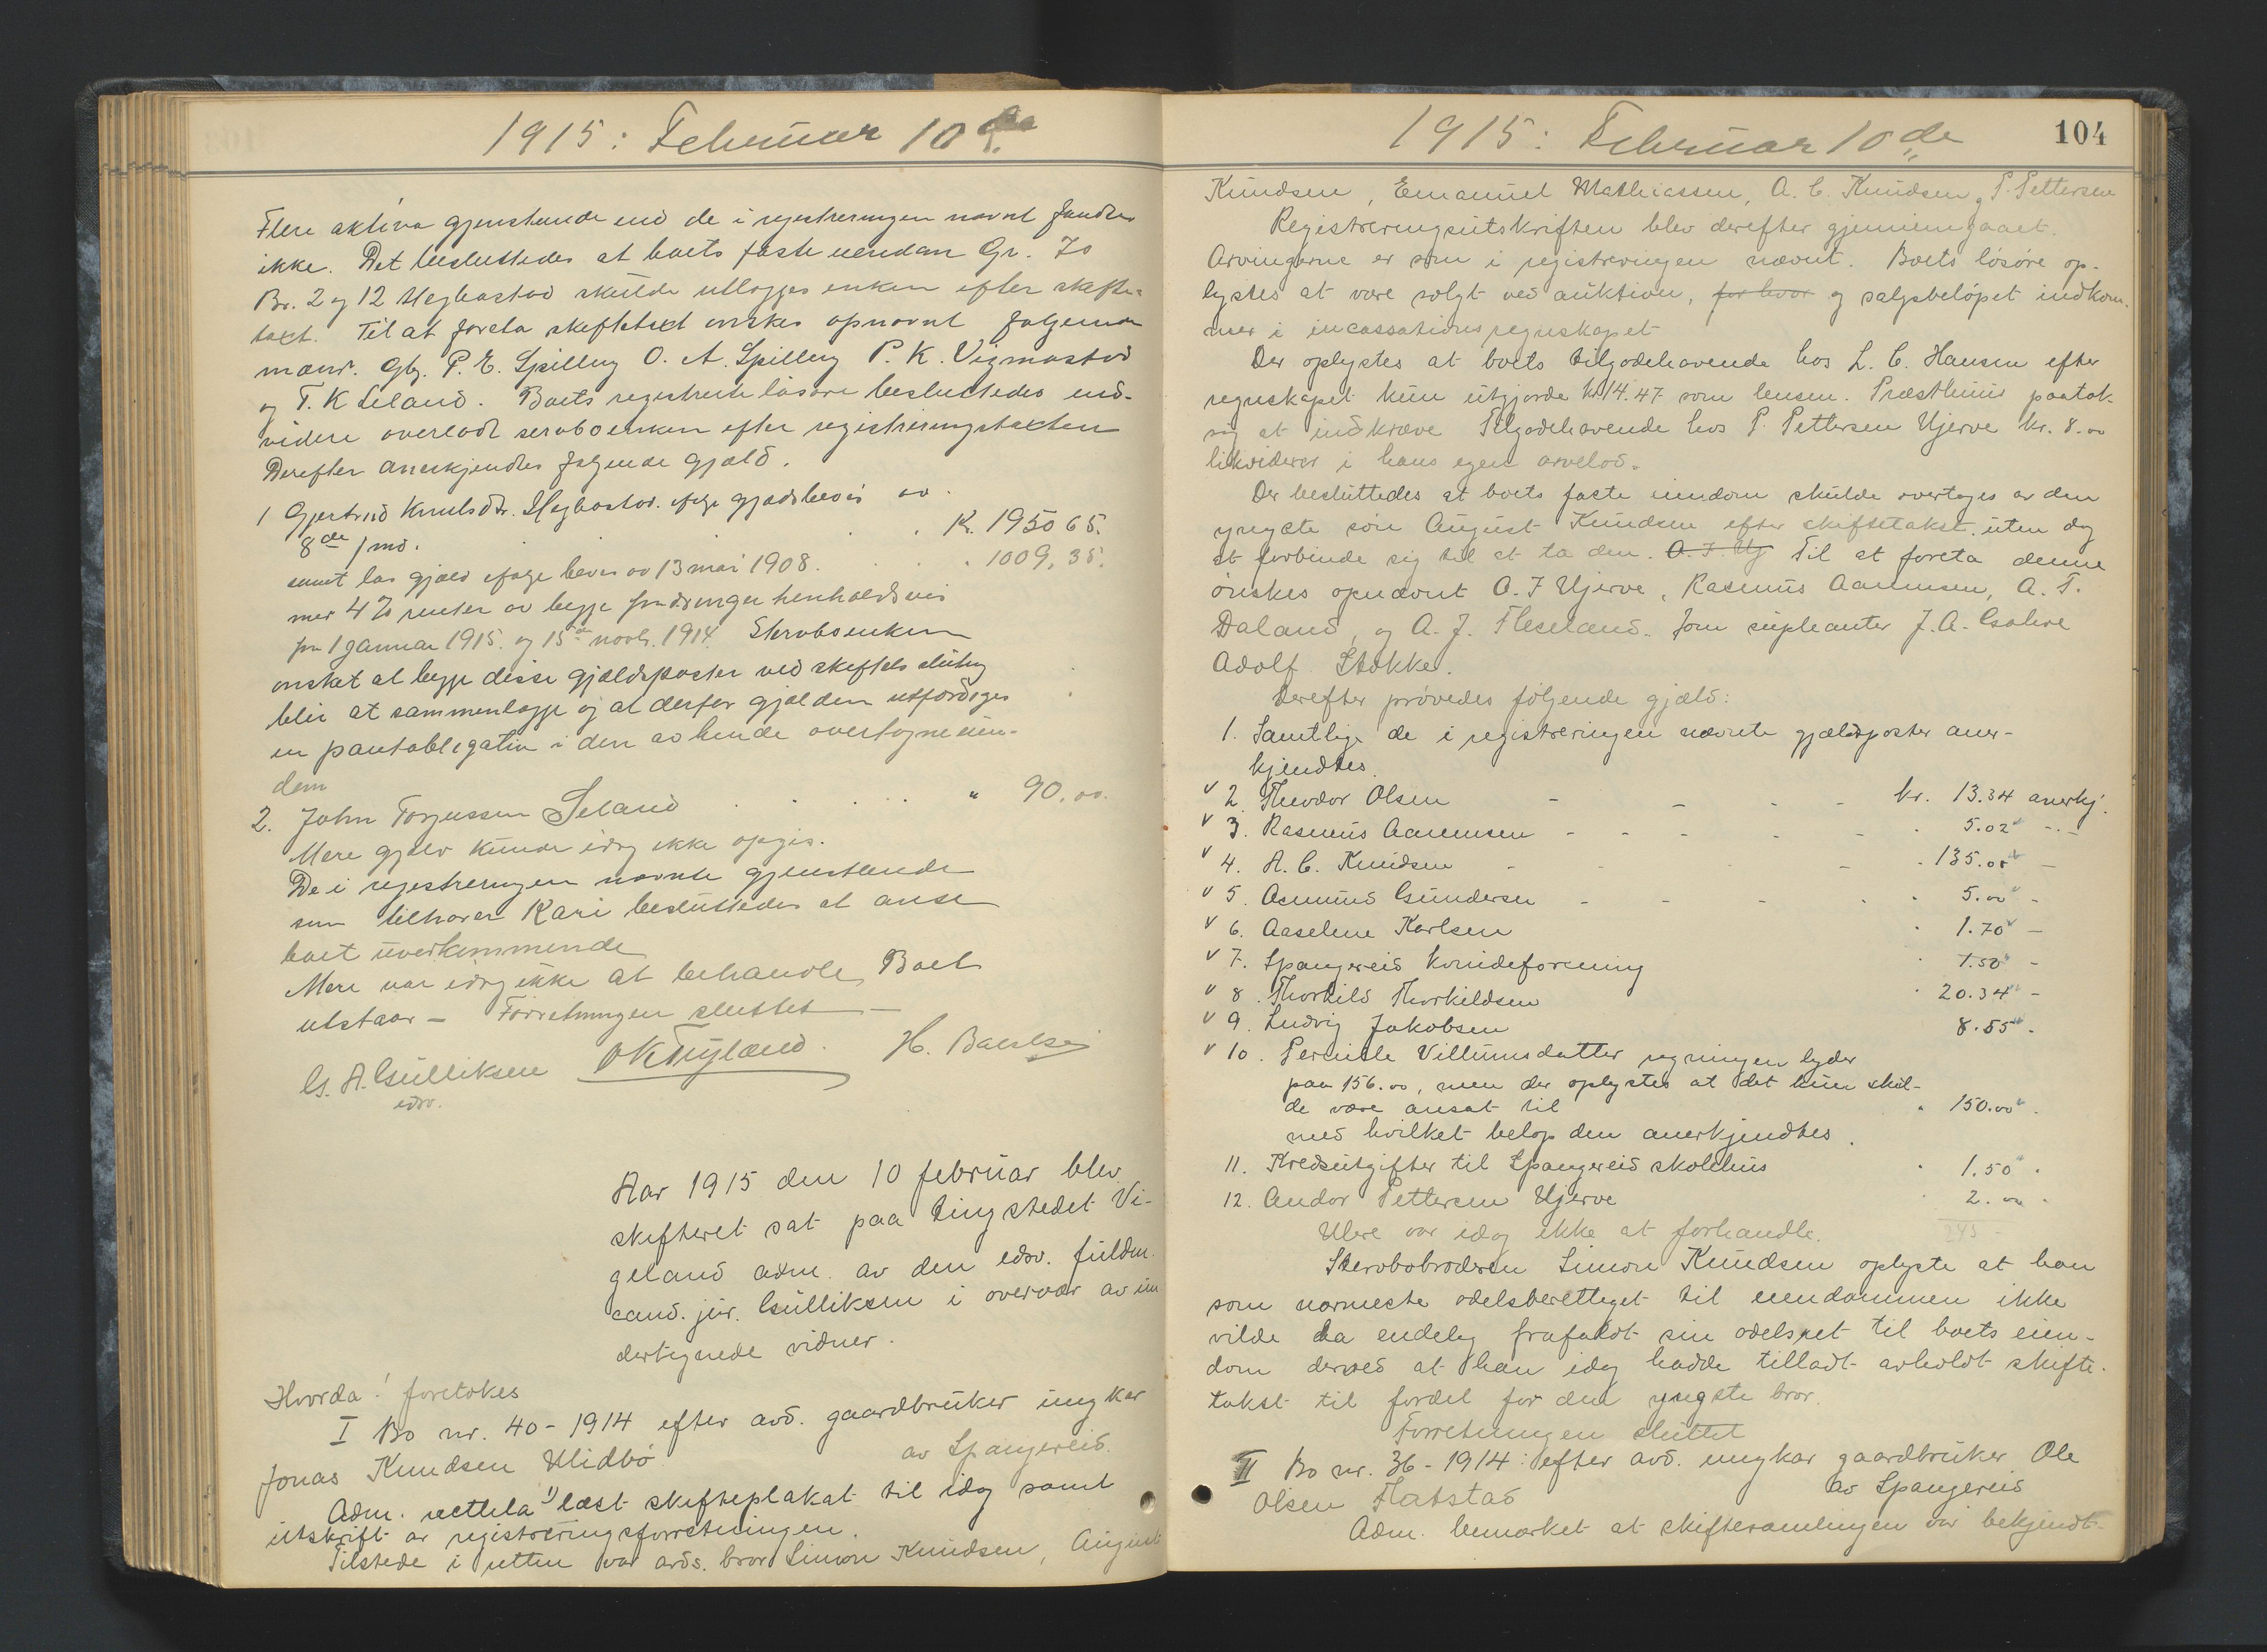 1915: Februar 10de
Flere aktiva gjenstande end de i registreringen nævnt fandtes
ikke. Det besluttedes at boets faste eiendom Gr. 70
Br. 2 og 12 Hegbostad skulde utlægges enken efter skifte-
takst. Til at foreta skiftetakst ønskes opnævnt følgende
mænd. Gbr. P. E. Spilling O. A. Spilling P. K. Vigmostad
og T. K Leland. Boets registrerte løsøre besluttedes end-
videre overladt stervboenken efter registreringstaksten
Derefter anerkjendtes følgende gjæld.
1 Gjertrud Knutsdtr. Hegbostad. ifølge gjældsbevis av
8de / md. Kr. 1950 65.
samt løs gjæld ifølge bevis av 13 mai 1908. 1009, 35.
med 4 % renter av begge fordringer henholdsvis
fra 1 januar 1915. og 15de novbr. 1914. Stervboenken
ønsket at begge disse gjældsposter ved skiftets slutning
blir at sammenlægge og at derfor gjælden utfærdiges
en pantobligation i den av hende overtagne eien-
dom
2. John Torjussen Leland " 90.00.
Mere gjæld kunde idag ikke opgis.
De i registreringen nævnte gjenstande
som tilhører Kari besluttedes at anse
boet uvedkommende
Mere var idag ikke at behandle, Boet
utstaar – Forretningen sluttet –
G. A. Gulliksen OKTryland. H. Baerlsej
edsv.
Aar 1915 den 10 februar blev
skifteret sat paa tingstedet Vi-
geland adm. av den edsv. fuldm.
cand. jur. Gulliksen i overvær av un
dertegnede vidner.
Hvorda! foretokes
I Bo nr. 40 - 1914 efter avd. gaardbruker ungkar
Jonas Knudsen Midbø av Spangereid.
Adm. rettela 1) læst skifteplakat til idag samt
utskrift av registreringsforretningen.
Tilstede i retten var avds. bror Simon Knudsen, August
1915: Februar 10de 104
Knudsen, Emanuel Mathiassen, A. C. Knudsen og P. Pettersen
Registreringsutskriften blev derefter gjennemgaaet.
Arvingerne er som i registreringen nævnt. Boets løsøre op-
lystes at være solgt ved auktion, for hvor og salgsbeløpet indkom-
mer i incassationsregnskapet
Der oplystes at boets tilgodehavende hos L. C. Hansen efter
regnskapet kun utgjorde kr 14.47 som lensm. Præsthuus paatok
sig at indkræve Tilgodehavende hos P. Pettersen Ujerve kr. 8.00
likvideres i hans egen arvelod.
Der besluttedes at boets faste eiendom skulde overtages av den
yngste søn August Knudsen efter skiftetakst, uten dog
at forbinde sig til at ta den. O. J. Uj Til at foreta denne
ønskes opnævnt O. J Ujerve, Rasmus Aanensen, A. T.
Daland, og A. J. Fleseland. Som supleanter J. A. Gahre
Adolf Stokke.
Derefter prøvedes følgende gjæld:
1. Samtlige de i registreringen nævnte gjældsposter aner-
kjendtes.
2. Theodor Olsen kr. 13.34 anerkj.
3. Rasmus Aanensen 5.02
4. A. C. Knudsen 135.00
5. Asmund Gundersen 5.00
6. Aaselene Karlsen 1.70
7. Spangereid kvindeforening 1.50
8. Thorkild Thorkildsen 20.34
9. Ludvig Jakobsen 8.55
10. Pernille Villumsdatter regningen lyder
paa 156.00, men der oplystes at det kun skul-
de være ansat til 150.00
med hvilket beløp den anerkjendtes.
11. Kredsutgifter til Spangereid skolehus 1.50
12. Andor Pettersen Ujerve 2.00
Mere var idag ikke at forhandle.
Stervbobroderen Simon Knudsen oplyste at han
som nærmeste odelsberettiget til eiendommen ikke
vilde ha endelig frafaldt sin odelsret til boets eien-
dom derved at han idag hadde tilladt avholdt skifte-
takst til fordel for den yngste bror.
Forretningen sluttet
II Bo nr. 36 - 1914: efter avd. ungkar gaardbruker Ole
Olsen Hatstad av Spangereid
Adm. bemærket at skiftesamlingen var bekjendt-